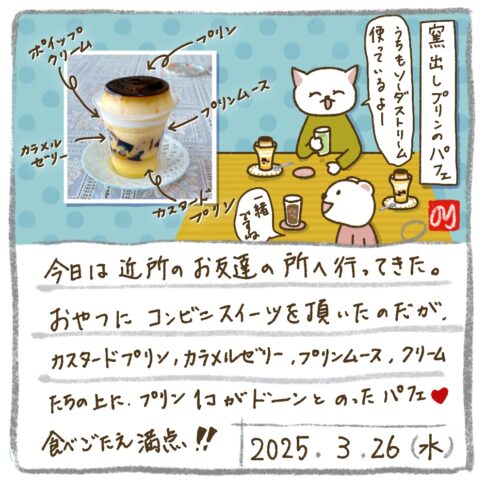 窯出しプリンのパフェ
うちもソーダストリーム
使っているよー
一緒
ですね
プリン
ホイップ
クリーム
プリンムース
カラメル
ゼリー
カスタード
プリン
今日は近所のお友達の所へ行ってきた。
おやつにコンビニスイーツを頂いたのだが、
カスタードプリン,カラメルゼリー,プリンムース,クリーム
たちの上に、プリン1コがドーンとのったパフェ♥
食べごたえ満点!!
2025.3.26(水)